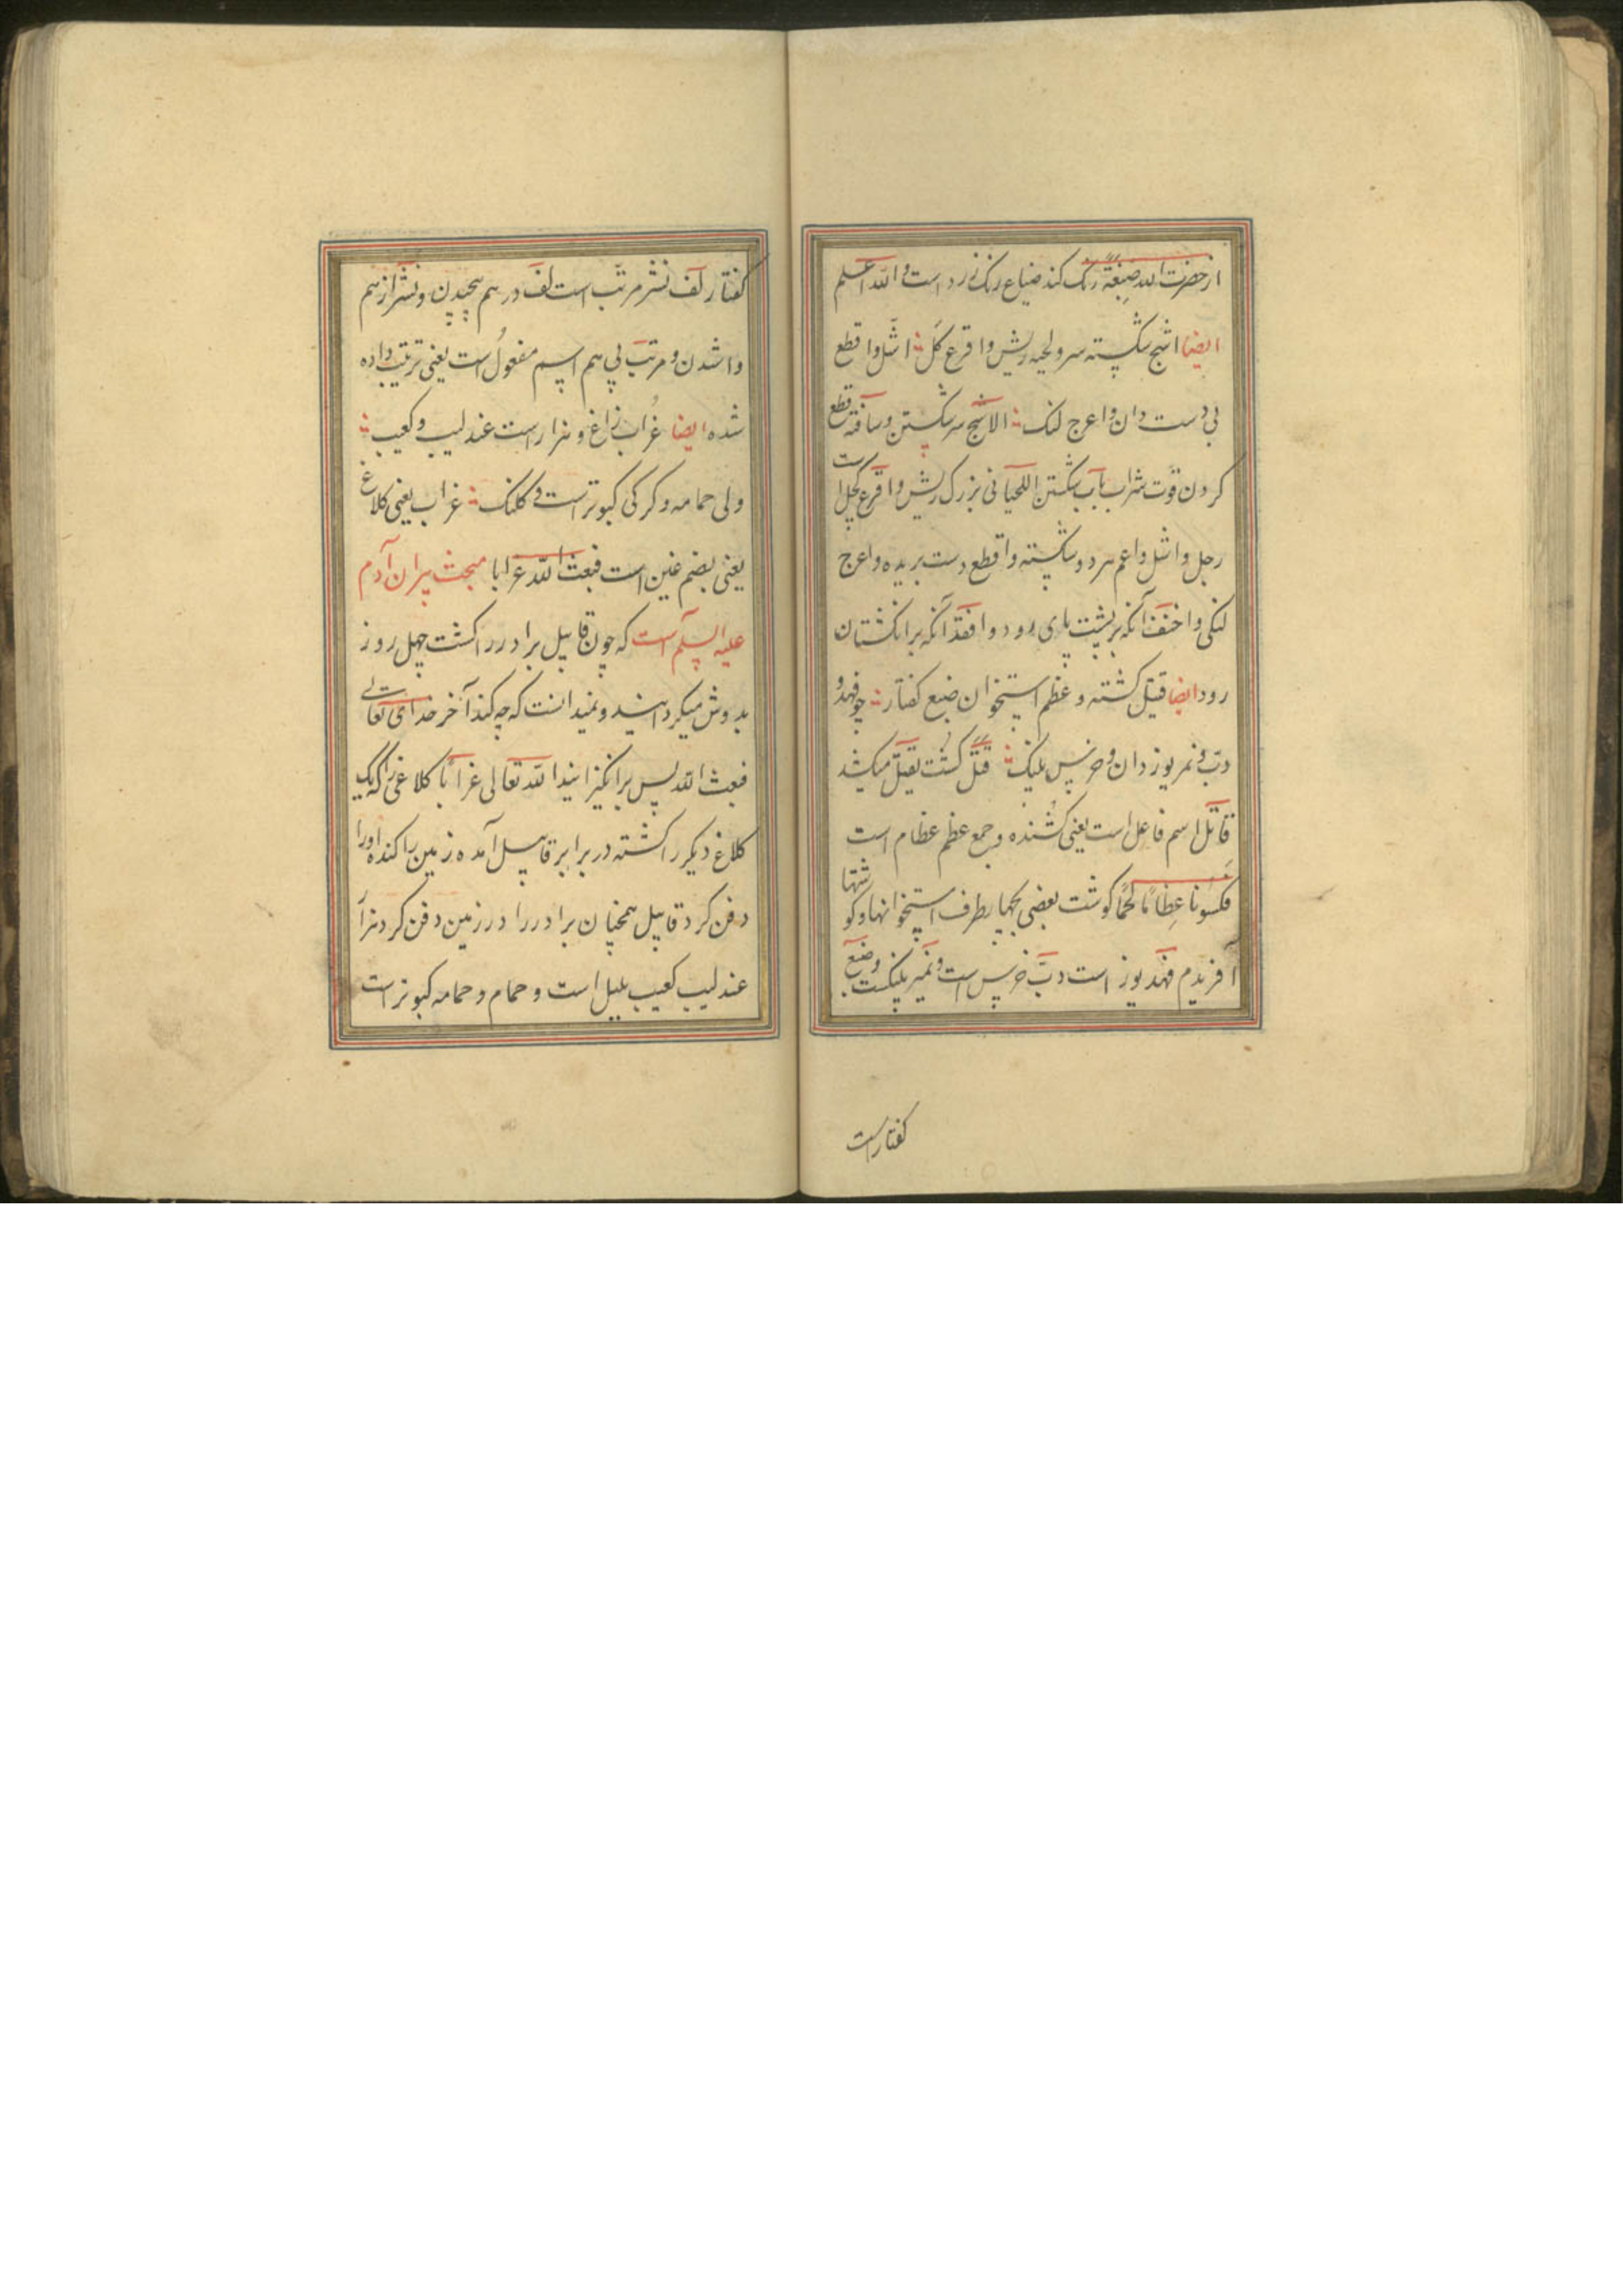 از حضرت الله صِبْغَةً رنگ کند ضیاع رنک زرد است والله اعلم
ایضا اشج شکسته سر و لحیه ریش و اقرع کَل اشل و اقطع
بی دست دان و اعرج لنک الاشج سر شکستن و مسافة قطع
کردن قوت شراب بآب شکستن اللحیانی بزرک ریش و اقرع کچل است
رجل و اشل و اعم مرد و شکسته و اقطع دست بریده و اعرج
لنکی و اخنف آنکه بر پشت پای رود و افقد آنکه بر انکشتان
رود ایضا قتیل کشته و عظم استخوان ضبع کفتار چو فهد و
دبّ و نمر یوز دان و خرس پلنک قتل کشت یقتل میکشد
قاتل اسم فاعل است یعنی کُشنده و جمع عظم عظام است
فکسونا عِظامًا لحمًا کوشت بعضی بطرف استخوانها و کوشتها
آفریدم فهد یوز است دبّ خرس است و نمیر پلنکست و ضبع
کفتار است
کفتار لف نشر مرتّب است لف در هم پیچیدن و نشر از هم
وا شدن و مرتب پی هم اسم مفعول است یعنی ترتیب داده
شده ایضا غُراب زاغ و هزار است عندلیب و کعیب
ولی حمامه و کرکی کبوتر است و کلنک غراب یعنی کلاغ
یعنی بضم غین است فبعث الله غرابا مبحث پسران آدم
علیه السلم است که چون قابیل برادر را کشت چهل روز
بدوش میکردانید و نمیدانست که چه کند آخر خدای تعالی
فبعث الله پس برانکیزانید الله تعالی غرابًا کلاغی را که یک
کلاغ دیکر را کشته در برابر قابیل آمده زمین را کنده اورا
دفن کرد قابیل همچنان برادر را در زمین دفن کرد هزار
عندلیب کعیب بلبل است و حمام و حمامه کبوتر است